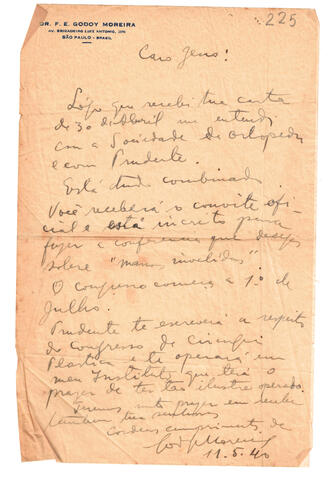 225
DR. F. E. GODOY MOREIRA
AV. BRIGADEIRO LUIZ ANTONIO,
SÃO PAULO - BRASIL
Caro Jens:
Logo que recebi tua carta
de 30 de Abril me entendi
com a Sociedade de Ortopedia
e com Prudente.
Está tudo combinado
Você receberá o convite ofi
cial e está inscrito para
fazer a conferencia que desejas
sobre "manos invalidas"
O congresso começa a 1º de
Julho.
Prudente te escreverá a respeito
do congresso de cirurgia
Plastica e te operará em
meu Instituto que terá o
prazer de ter tão ilustre operado.
Teremos muito prazer em receber
tambem tua senhora
Cordeaes cumprimentos de
Godoy Moreira
11.5.40